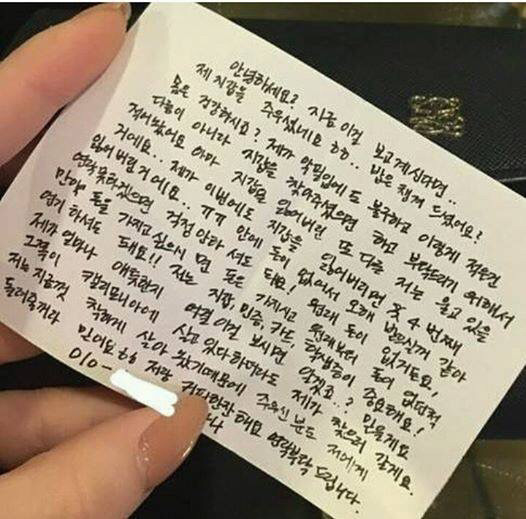 안녕하세요? 지금 이걸 보고계신다면..
제 지갑을 주우셨네요 ㅎㅎ.. 밥은 챙겨 드셨어요?
몸은 건강하시죠? 제가 악필임에도 불구하고 이렇게 적은건
다름이 아니라 지갑을 찾아주셨으면 하고 부탁드리기 위해서
적어봤어요 아마 지갑을 잃어버린 또 다른 저는 울고 있을
거에요.. 제가 이번에도 지갑을 잃어버리면 4번째
잃어버린거에요.. ㅠㅠ 안에 돈이 없어서 오해 받으실거 같아
연락 못하겠으면 걱정 않아 셔도 돼요! 원래 돈이 없거든요,
만약 돈을 가지고 싶으시 면 돈은 가지시고 원래부터 돈이 없던척
연기 하셔도 돼요!! 저는 지갑, 민증, 카드, 학생증이 중요해요!
제가 얼마나 애틋한지 이걸 보시면 알겠죠..?
그쪽이 캘리포니아에 살고있다 하더라도 제가 찾으러 갈게요.
저는 지금껏 착하게 살아 왔기때문에 주우신 분도 저에게
돌려줄거라 믿어요 ㅎㅎ 저랑 커피한잔해요 연락부탁 드립니다.
010-